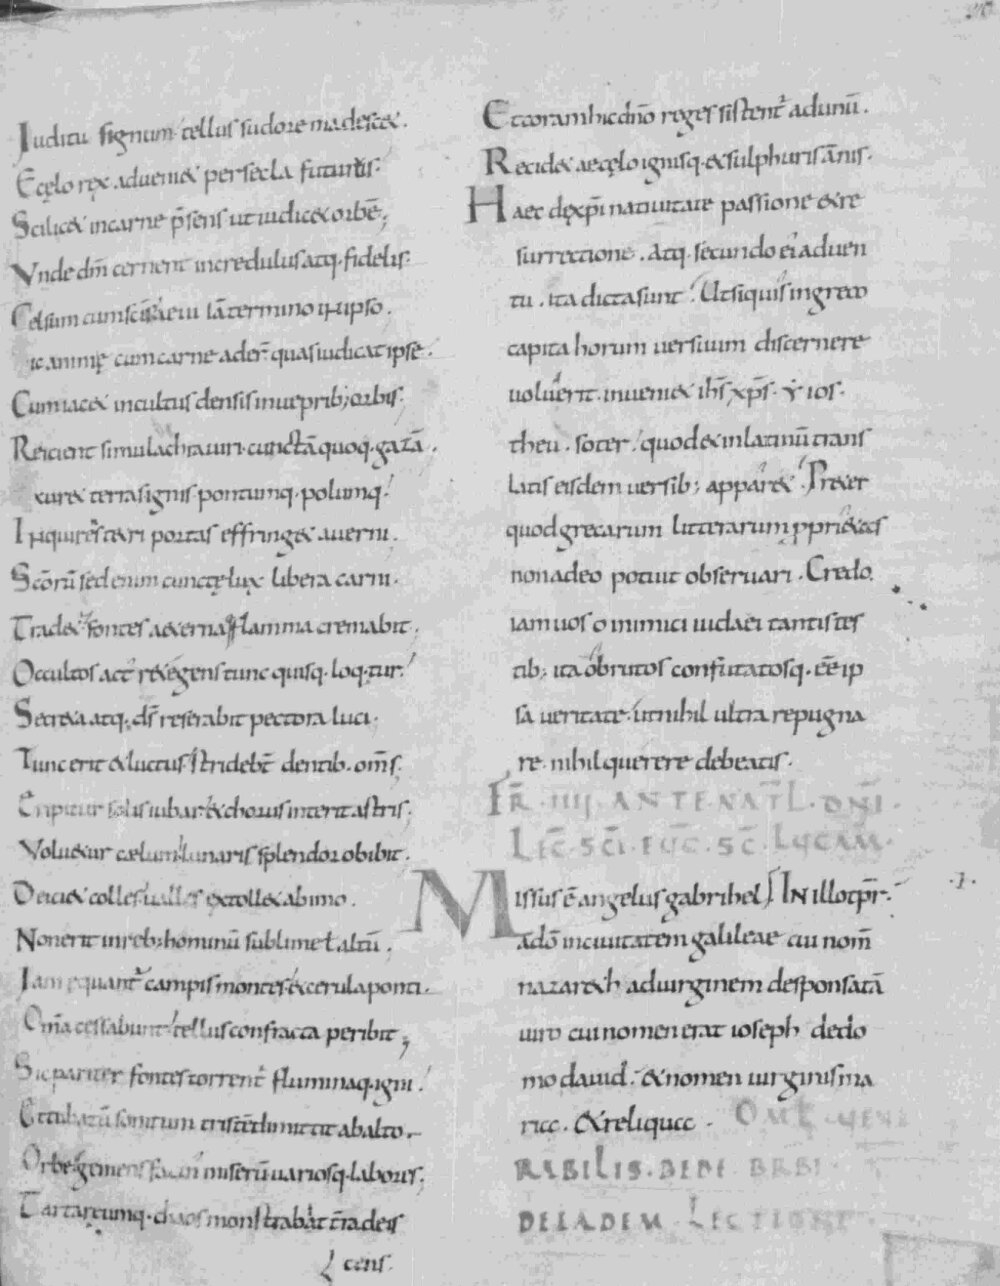 Iudicii signum tellus sudore madescet.
E cęlo rex adueniet per secla futurus.
Scilicet in carne p̄sens ut iudicet orbē.
Vnde dm̄ cernent incredulus atq. fidelis.
Celsum cum sc̄is ęui iā termino in ipso.
ic animę cum carne ader̄ quas iudicat ipse.
Cum iacet incultus densis in ueprib; orbis.
Reicient simulachra uiri. cunctā quoq. gazā.
xuret terras ignis pontumq. polumq.
Inquirēs tetri portas effringet auerni.
Scōrū sed enim cunctę lux libera carni.
Tradet᷑ fontes aeterna flamma cremabit.
Occultos act᷑ retegens tunc quisq. loq.tur.
Secreta atq. ds̄ reserabit pectora luci.
Tunc erit & luctus stridebt̄ dentib. oms̄.
Eripitur solis iubar & chorus interit astris.
Voluetur cælum lunaris splendor obibit.
Deiciet colles ualles extollet ab imo.
Non erit in reb; hominū sublime ł altū.
Iam equant᷑ campis montes & cerula ponti.
Om̄a cessabunt tellus confracta peribit;
Sic pariter fontes torrent᷑ fluminaq. igni.
Et tubatū sonitum tristē dimittit ab alto.
Orbe gemens facin miserū uariosq. labores.
Tartareumq. chaos monstrabit t̄ra deis
cens.
Et coram hic dn̄o reges sistent᷑ ad unū.
Recidet ae cęlo ignisq. & sulphuris ānis.
Haec de xp̄i natiuitate passione & re
surrectione. Atq. secundo ei aduen
tu. ita dicta sunt. Ut siquis in greco
capita horum uersuum discernere
uoluerit. inueniet ih̄s xp̄s. yios.
theu. soter. quod & in latinū trans
latis eisdem uersib; apparet. Preter
quod grecarum litterarum pprietas
non adeo potuit obseruari. Credo.
iam uos o inimici iudaei tantis tes
tib; ita obrutos confutatosq. eē ip
sa ueritate. ut nihil ultra repugna
re. nihil querere debeatis.
FR̄. IIII. ANTE. NATL̄. DN̄I.
LEC̄. SC̄I. EUC̄. SC̄. LUCAM.
Missus ē angelus gabrihel IN illo tp̄r. .I.
a dō in ciuitatem galileae cui nom̄
nazareth ad uirginem desponsatā
uiro cui nomen erat ioseph de do
mo dauid. & nomen uirginis ma
ricc. & reliqucc. OMEL. UENE
RABILIS. BEDE PRBI.
DE EADEM. LECTIONE.